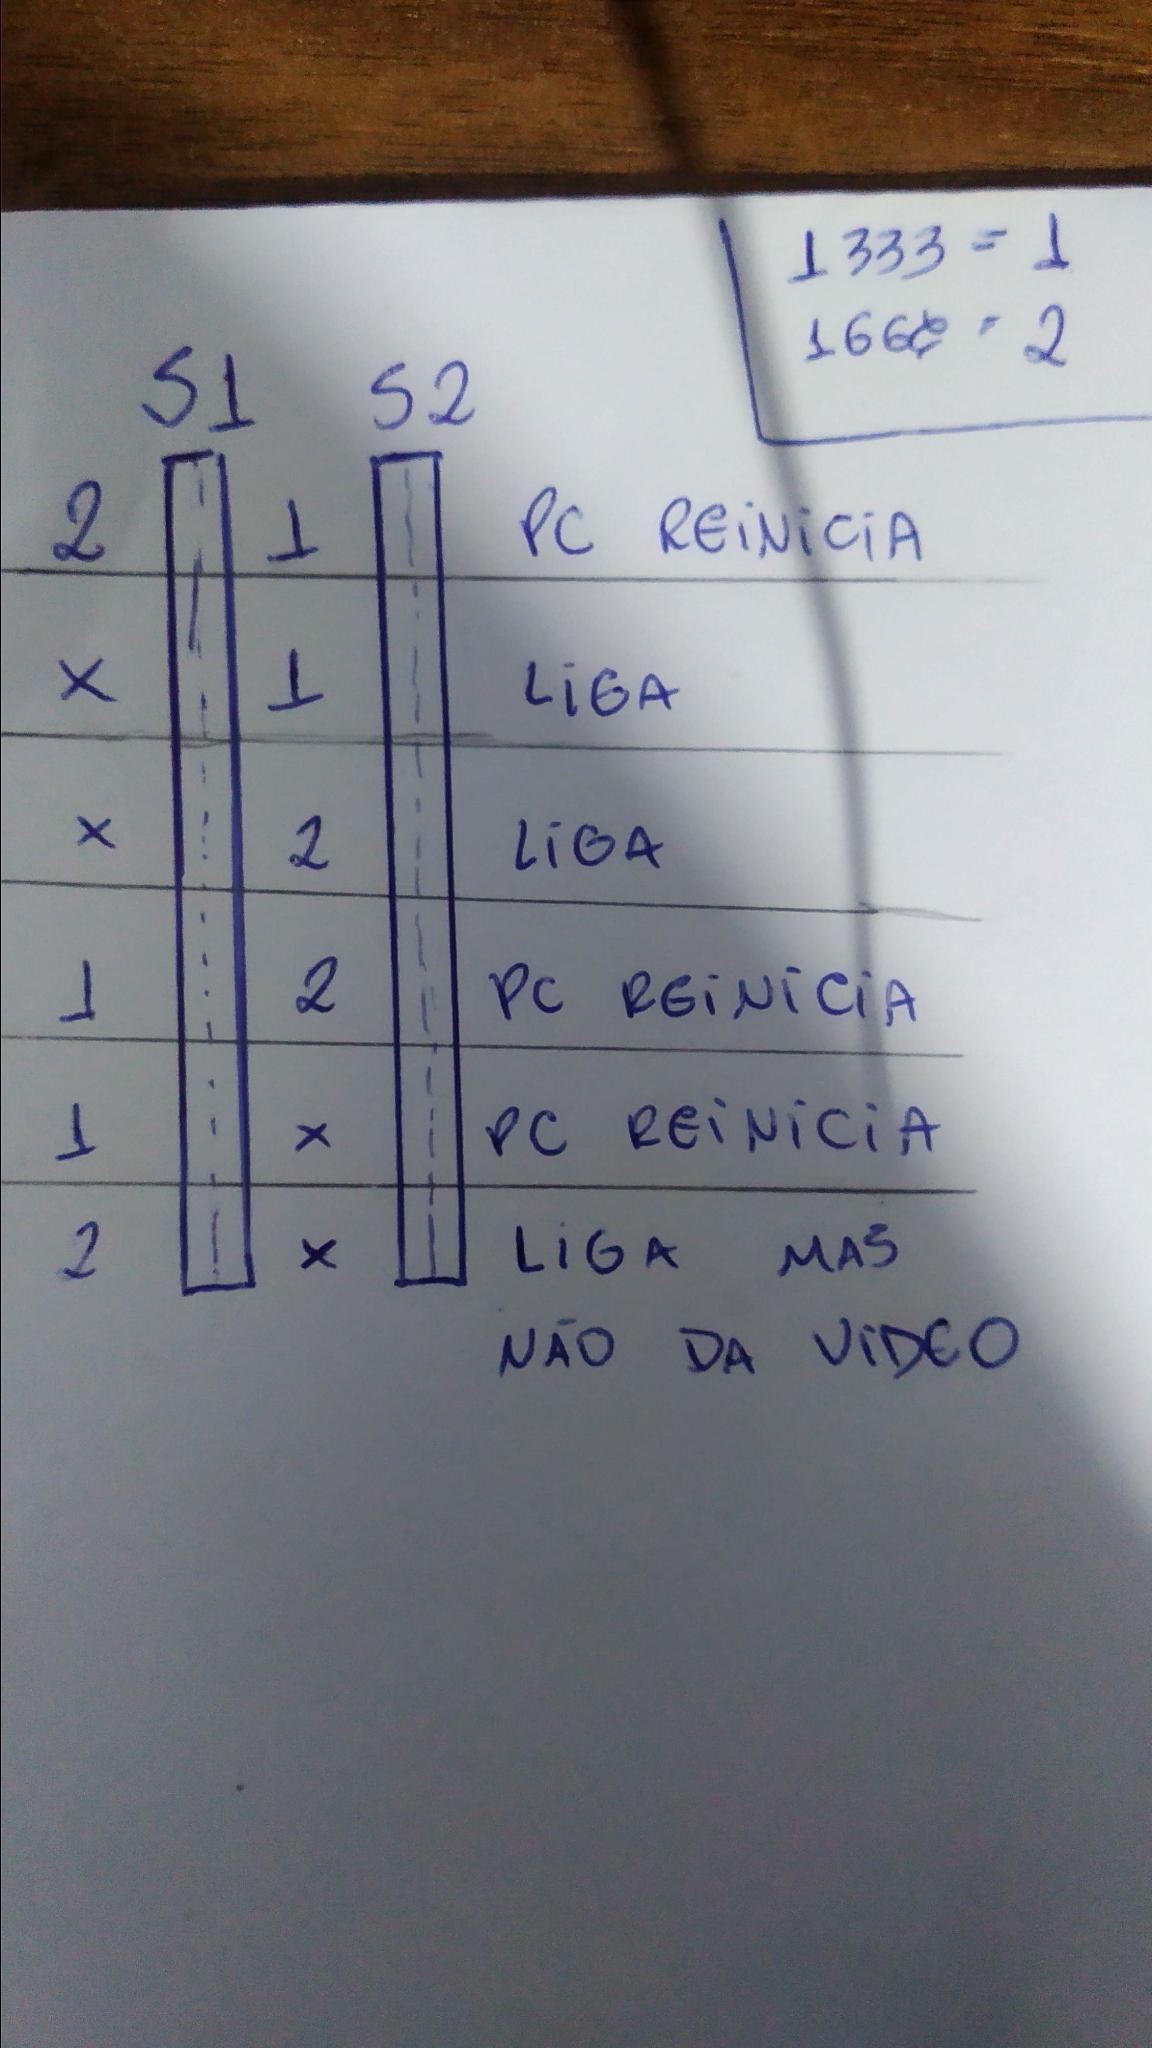 1333 = 1
1666 = 2
S1 S2
2 1 PC REiNiCiA
x 1 LiGA
x 2 LiGA
1 2 PC REiNiCiA
1 x PC REiNiCiA
2 x LiGA MAS
NÃO DA ViDEO